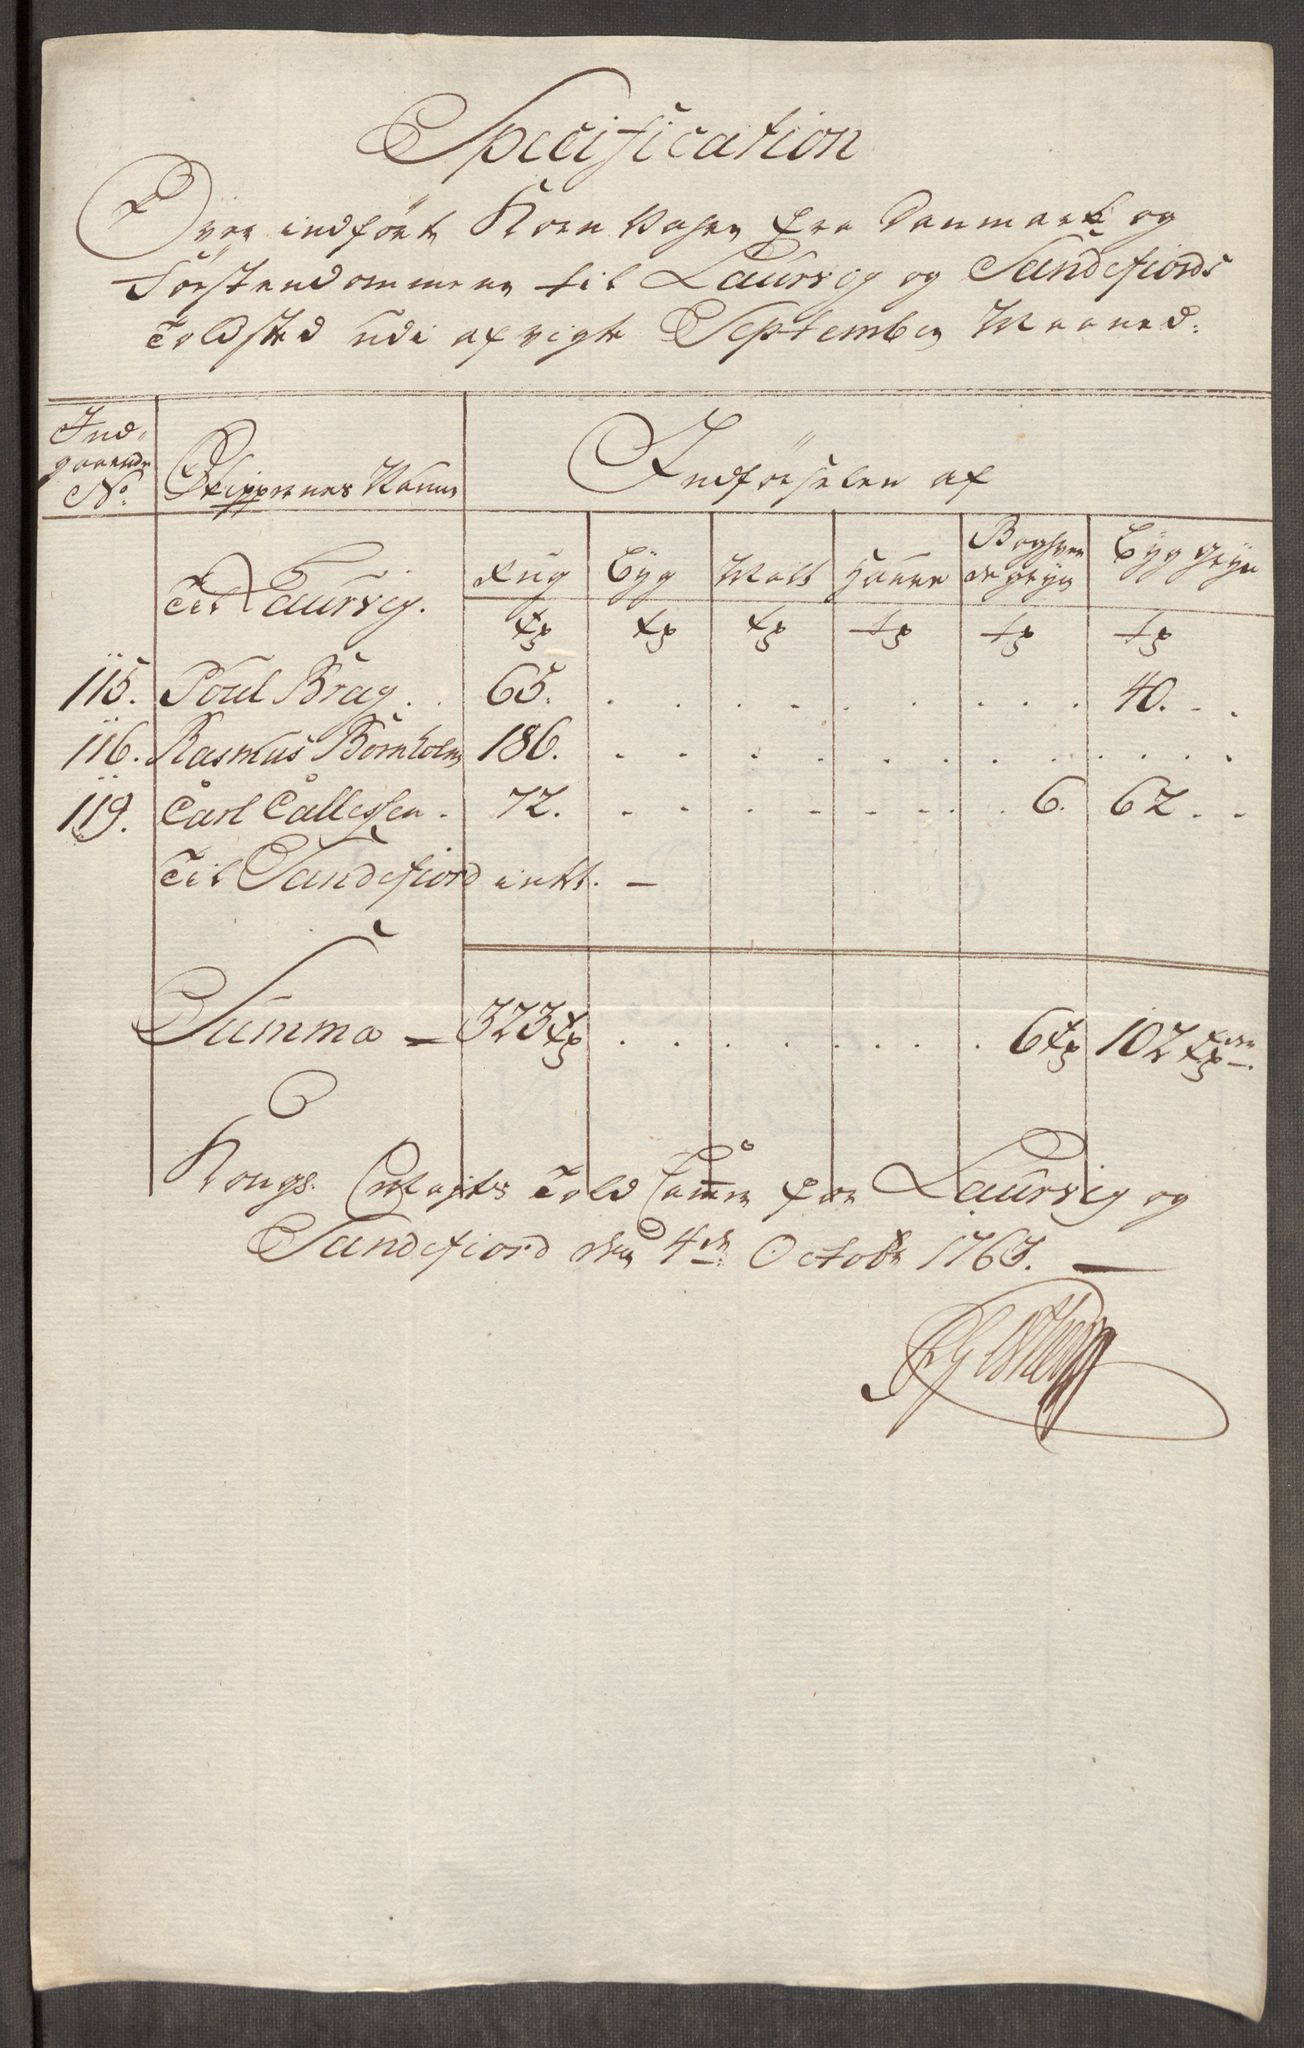 Specification
Over indført Korn Vahre fra Danmark og
Førstendommene til Laurvig og Sandefiords
Toldsted udi afvigte September Maaned:
Ind-
gaaende
No.
Skippernes Navne
Indførselen af
Til Laurvig.
Rug
Byg
Malt
Haure
Boghve
de gryn
Byg gryn
Tr Tr Tr Tr Tr Tr
115. Poul Brag . . 65. . . . . . . . . 40. . .
116. Rasmus Bornholm 186. . . . . . . . . . . . .
119. Carl Callessen . 72. . . . . . . . . 6. 62 . .
Til Sandefiord intet. —
Summa — 323 Tr . . . . . . . . 6 Tr 102 Tr
Kongs. Mayts Told Camer for Laurvig og
Sandefiord den 4de Octobr 1763. —